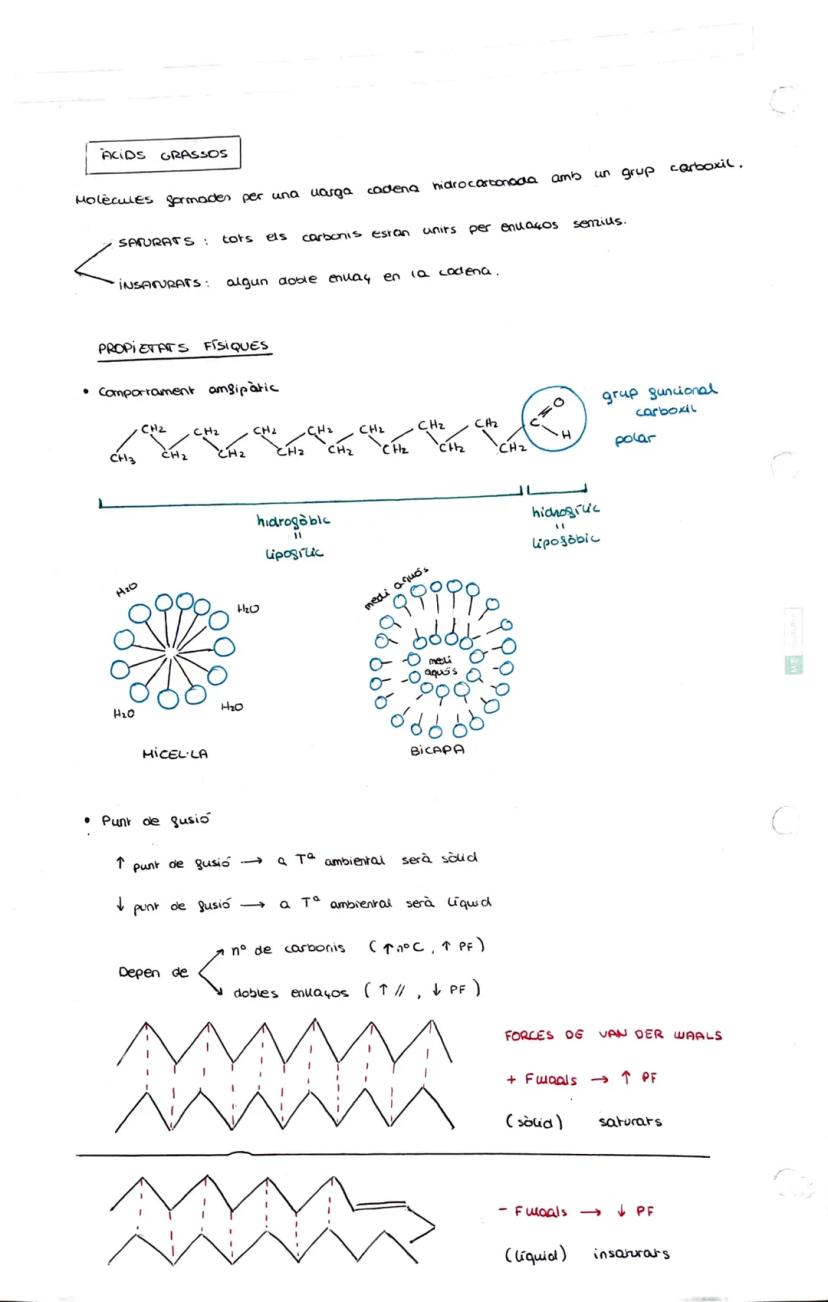 ÀCIDS GRASSOS
Molècules formades per una llarga cadena hidrocarbonada amb un grup carboxil.
SATURATS : tots els carbonis estan units per enllaços senzills.
INSATURATS : algun doble enllaç en la cadena.
PROPIETATS FÍSIQUES
• Comportament amfipàtic
CH3 CH2 CH2 CH2 CH2 CH2 CH2 CH2 CH2 CH2 CH2 CH2 CH2 CH2 CH2 CH2 C O H
grup funcional
carboxil
polar
hidrofòbic
=
lipofílic
hidrofílic
=
lipofòbic
H2O
H2O
H2O
H2O
MICEL·LA
medi aquós
medi
aquós
BICAPA
• Punt de fusió
↑ punt de fusió → a Tª ambiental serà sòlid
↓ punt de fusió → a Tª ambiental serà líquid
Depen de
nº de carbonis (↑ nº C, ↑ PF)
dobles enllaços (↑ //, ↓ PF)
FORCES DE VAN DER WAALS
+ Fwaals → ↑ PF
(sòlid) saturats
- Fwaals → ↓ PF
(líquid) insaturats